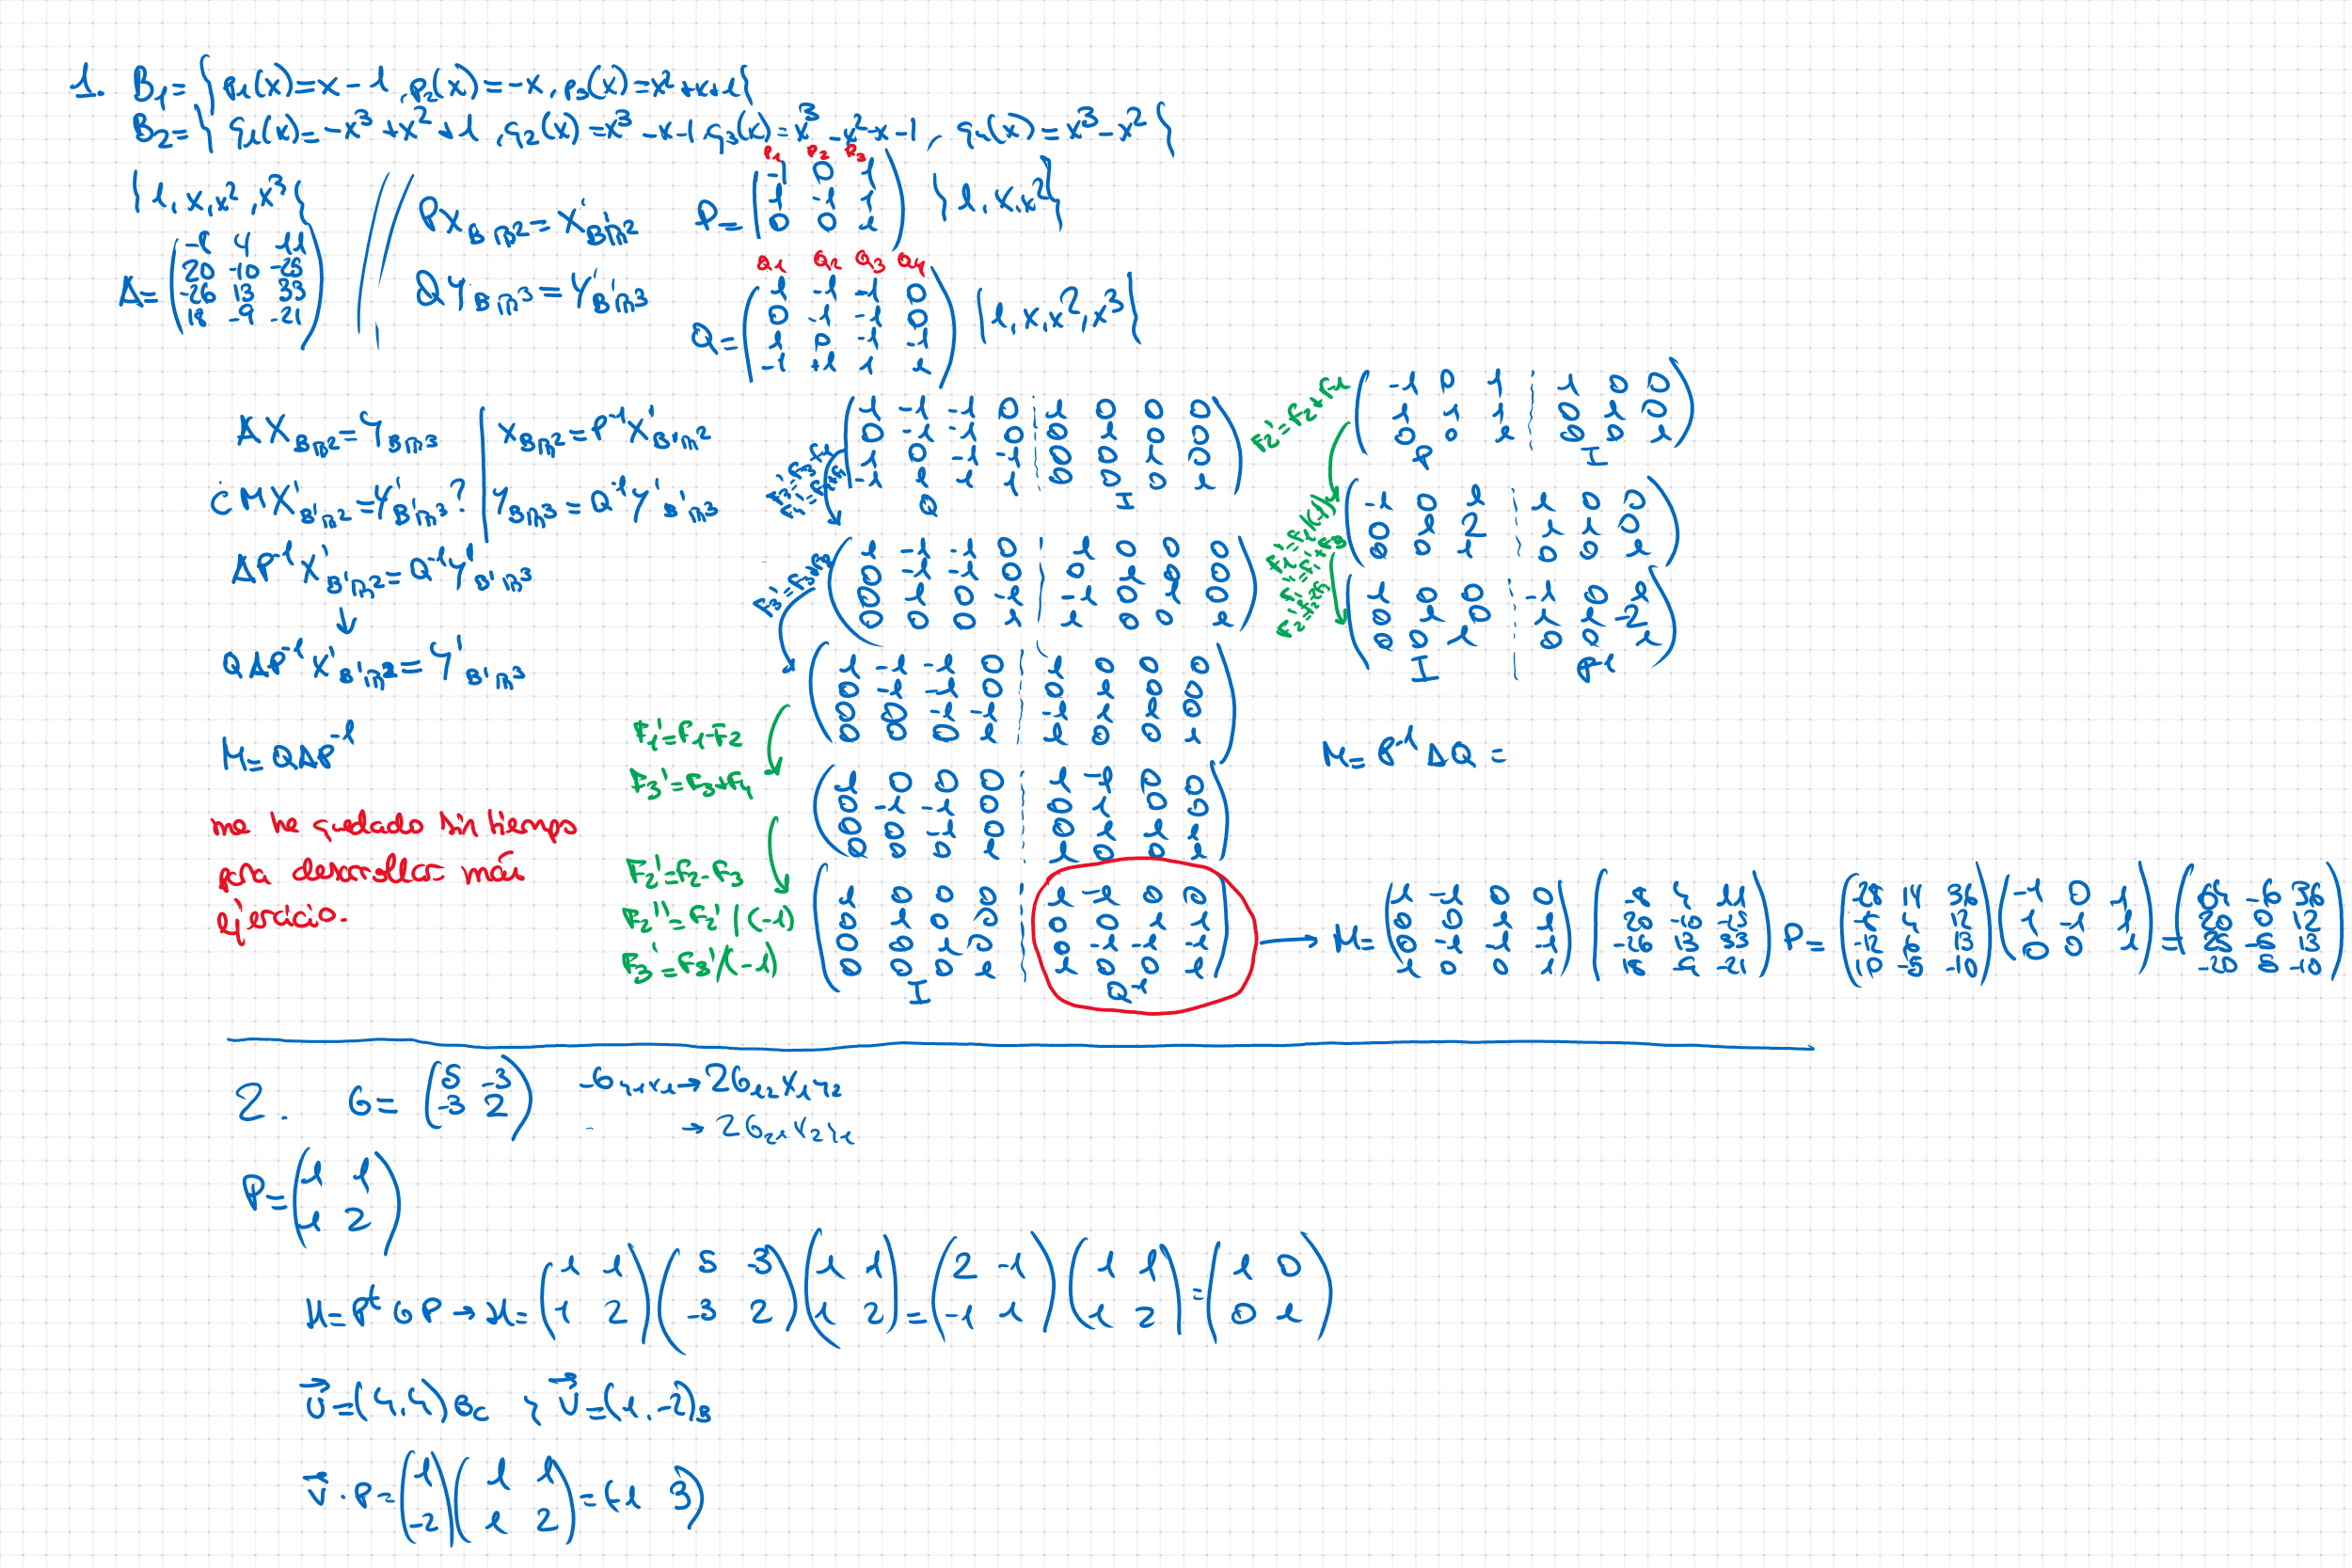 1. B₁= { p₁(x)=x-1, p₂(x)=-x, p₃(x)=x²+x+1 {
B₂= { q₁(x)=-x³+x²+1, q₂(x)=x³-x-1, q₃(x)=x³-x²-x-1, q₄(x)=x³-x² {
{1, x, x², x³{
A= (-8 4 11
20 -10 -25
-26 13 33
18 -9 -21)
P X_B ℝ² = X'_B'ℝ²
Q Y_B ℝ³ = Y'_B'ℝ³
P₁ P₂ P₃
P= (-1 0 1
1 -1 1
0 0 1) {1, x, x²}
Q₁ Q₂ Q₃ Q₄
Q= (1 -1 -1 0
0 -1 -1 0
1 0 -1 -1
-1 +1 1 1) {1, x, x², x³{
A X_Bℝ² = Y_Bℝ³ | X_Bℝ² = P⁻¹X'_B'ℝ²
¿ M X'_B'ℝ² = Y'_B'ℝ³ ? | Y_Bℝ³ = Q⁻¹Y'_B'ℝ³
A P⁻¹ X'_B'ℝ² = Q⁻¹Y'_B'ℝ³
↓
Q A P⁻¹ X'_B'ℝ² = Y'_B'ℝ³
M= Q A P⁻¹
me he quedado sin tiempo
para desarrollar más
ejercicio.
(1 -1 -1 0 1 0 0 0
0 -1 -1 0 0 1 0 0
1 0 -1 -1 0 0 1 0
-1 1 1 1 0 0 0 1)
Q I
F3'=F3+F2
(1 -1 -1 0 1 0 0 0
0 -1 -1 0 0 1 0 0
0 1 0 -1 -1 0 1 0
0 0 0 1 1 0 0 1)
(1 -1 -1 0 1 0 0 0
0 -1 -1 0 0 1 0 0
0 0 -1 -1 -1 1 1 0
0 0 0 1 1 0 0 1)
F1'=F1-F2
F3'=F3+F4
(1 0 0 0 1 -1 0 0
0 -1 -1 0 0 1 0 0
0 0 -1 0 0 1 1 1
0 0 0 1 1 0 0 1)
F2'=F2-F3
F2''=F2'/(-1)
F3'=F3'/(-1)
(1 0 0 0 1 -1 0 0
0 1 0 0 0 0 1 1
0 0 1 0 0 -1 -1 -1
0 0 0 1 1 0 0 1)
I Q⁻¹
F2'=F2+F1
(-1 0 1 1 0 0
1 1 1 0 1 0
0 0 1 0 0 1)
P I
(-1 0 1 1 0 0
0 1 2 1 1 0
0 0 1 0 0 1)
(1 0 0 -1 0 1
0 1 0 1 1 -2
0 0 1 0 0 1)
I P⁻¹
M= P⁻¹ A Q =
→ M= (1 -1 0 0
0 0 1 1
0 -1 -1 -1
1 0 0 1) (-8 4 11
20 -10 -25
-26 13 33
18 -9 -21) P= (28 14 36
-8 4 12
-12 6 13
10 -5 -10) (-1 0 1
1 -1 1
0 0 1) = (64 -6 36
20 0 12
25 -6 13
-20 5 -10)
2. G= (5 -3
-3 2) -6y₁x₁→ 2G₁₂x₁y₂
→ 2G₂₁x₂y₁
P= (1 1
1 2)
M= Pᵗ G P → M= (1 1
1 2) (5 -3
-3 2) (1 1
1 2) = (2 -1
-1 1) (1 1
1 2) = (1 0
0 1)
u⃗=(4,4)Bc y v⃗=(1,-2)B
v⃗ · P= (1
-2) (1 1
1 2) = (-1 3)